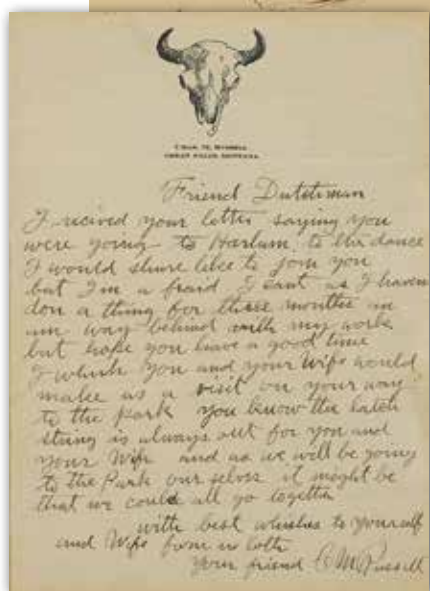 CHAS. M. RUSSELL
GREAT FALLS, MONTANA
Friend Dutchman
I recived your letter saying you
were going to Harlum to the dance
I would shure like to join you
but I'm a fraid I cant as I haven
don a thing for three months an
am way behind with my work
but hope you have a good time
I whish you and your Wife would
make us a visit on your way
to the park you know the latch
string is always out for you and
your Wife and as we will be going
to the Park our selves it might be
that we could all go togather
with best whishes to yourself
and Wife from us both
your friend CM Russell